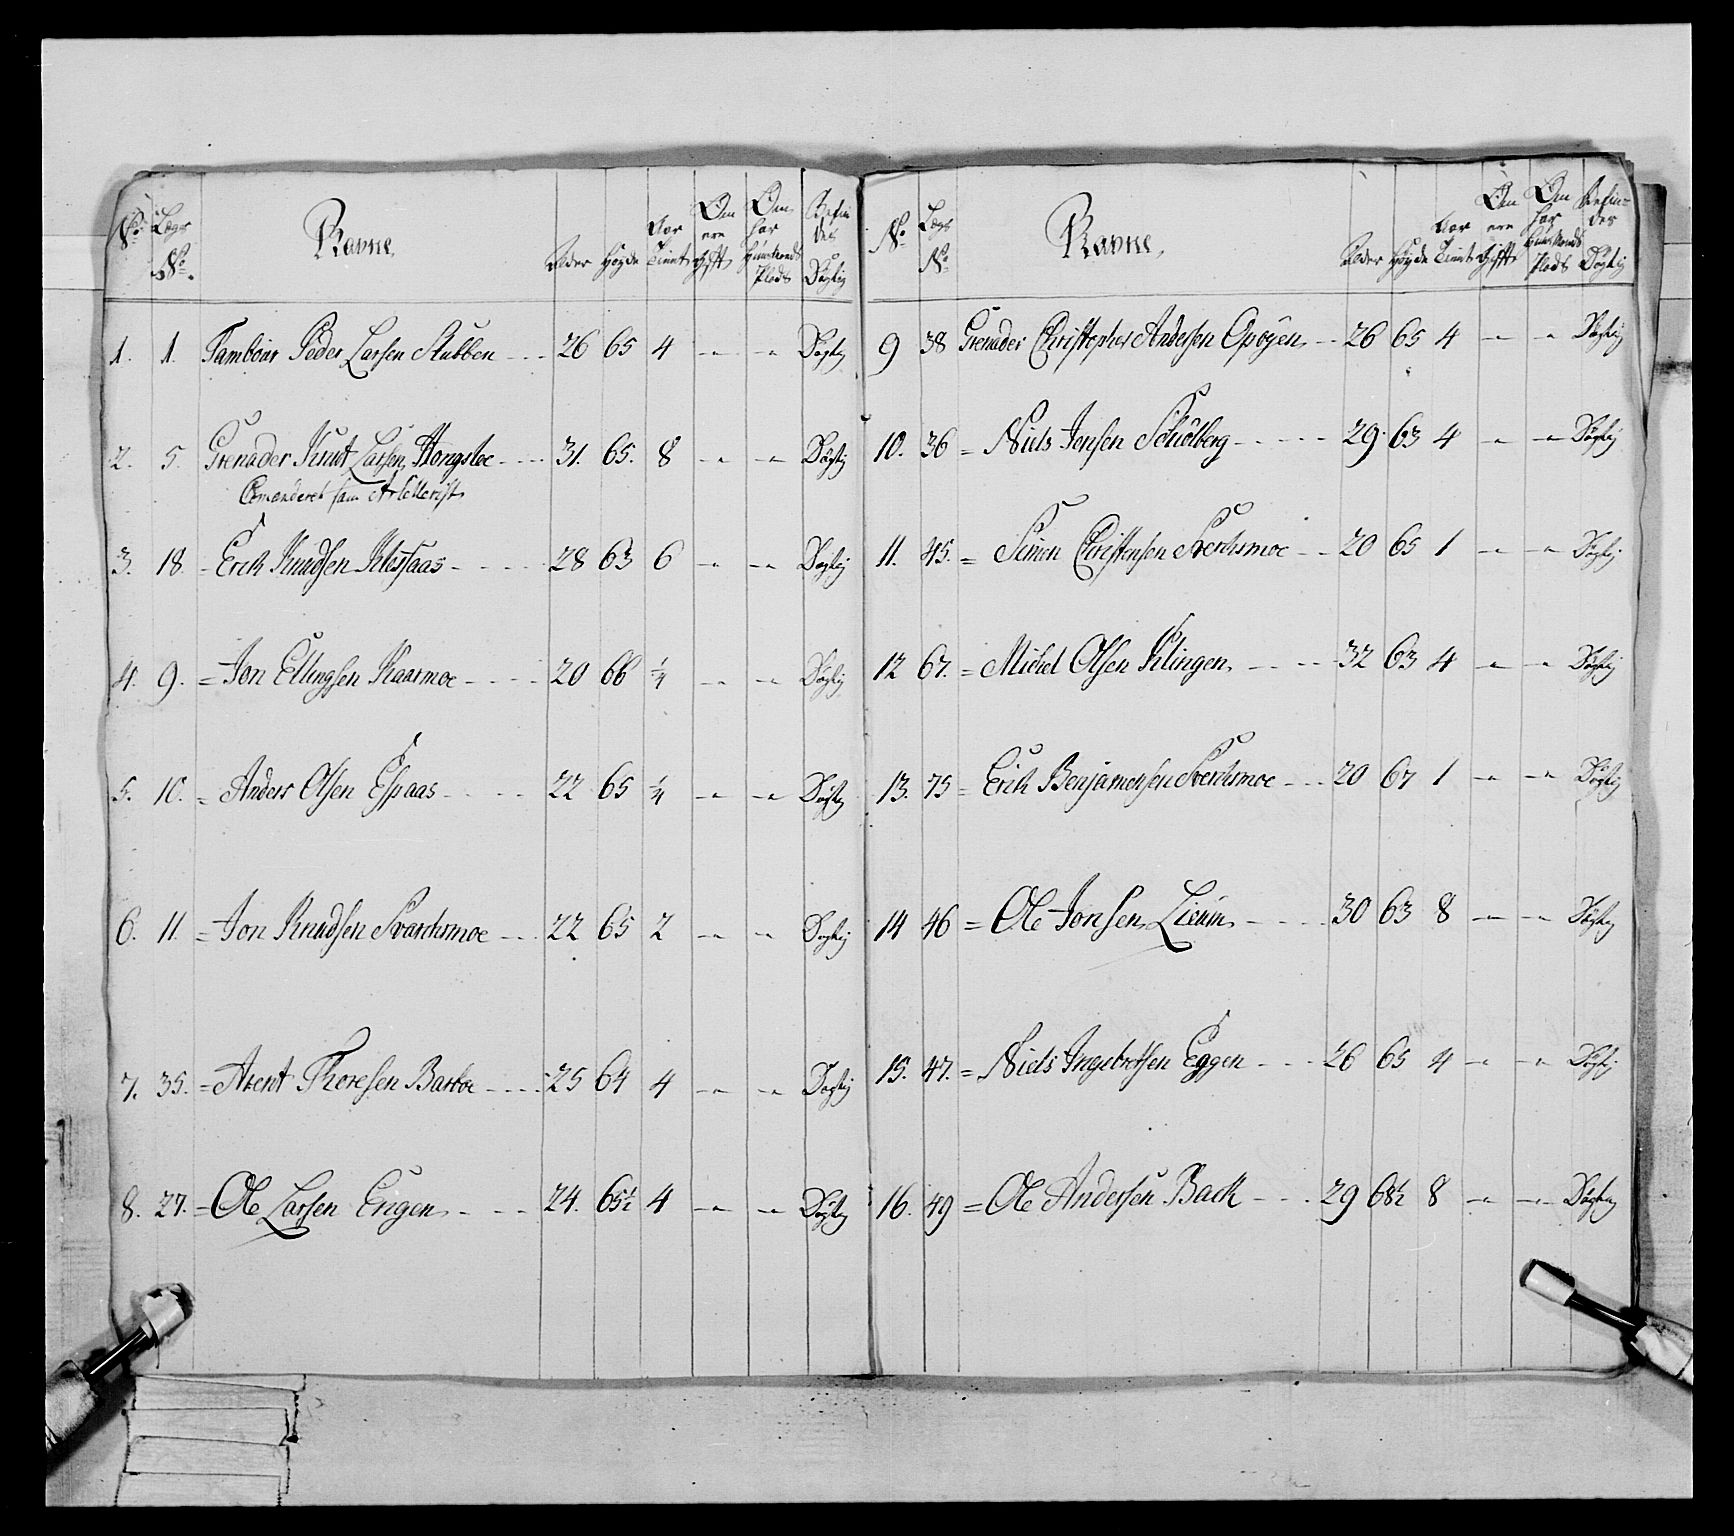 No. Lægs No. Navne. Alder Høyde Aar Tient Om ere Gift Om har Huusmands Plads Befindes Dygtig
1. 1. Tambour Peder Larsen Stubben 26 65 4 " " Dygtig
2. 5. Grenader Knut Larsen Hongsloe 31. 65. 8 " " Dygtig
Comanderet som Artellerist
3. 18 - Erich Knudsen Klæfsaas 28 63 6 " " Dygtig
4. 9. = Jon Ellingsen Kaasmoe 20 66 1/4 " " Dygtig
5. 10. = Anders Olsen Espaas 22 65 1/4 " " Dygtig
6. 11. = Jon Knudsen Svarthmoe 22 65 2 " " Dygtig
7. 35. = Arent Thoresen Barboe 25 64 4 " " Dygtig
8. 27. = Ole Larsen Engen 24. 65½ 4 " " Dygtig
No. Lægs No. Navne. Alder Høyde Aar Tient Om ere Gift Om har Huusmands Plads Befindes Dygtig
9 38 Grenader Christopher Andersen Opøyen 26 65 4 " " Dygtig
10. 36 = Niels Jensen Schiølberg 29. 63 4 " " Dygtig
11. 45. = Simon Christensen Sverchmoe 20 65 1 " " Dygtig
12 67. = Michel Olsen Klingen 32 63 4 " " Dygtig
13. 75 = Erich Benjamensen Sverchmoe 20 67 1 " " Dygtig
14 46 = Ole Jonsen Lieúm 30 63 8 " " Dygtig
15. 47. = Niels Ingebretsen Eggen 26 65 4 " " Dygtig
16. 49 = Ole Andersen Bach 29 68½ 8 " " Dygtig